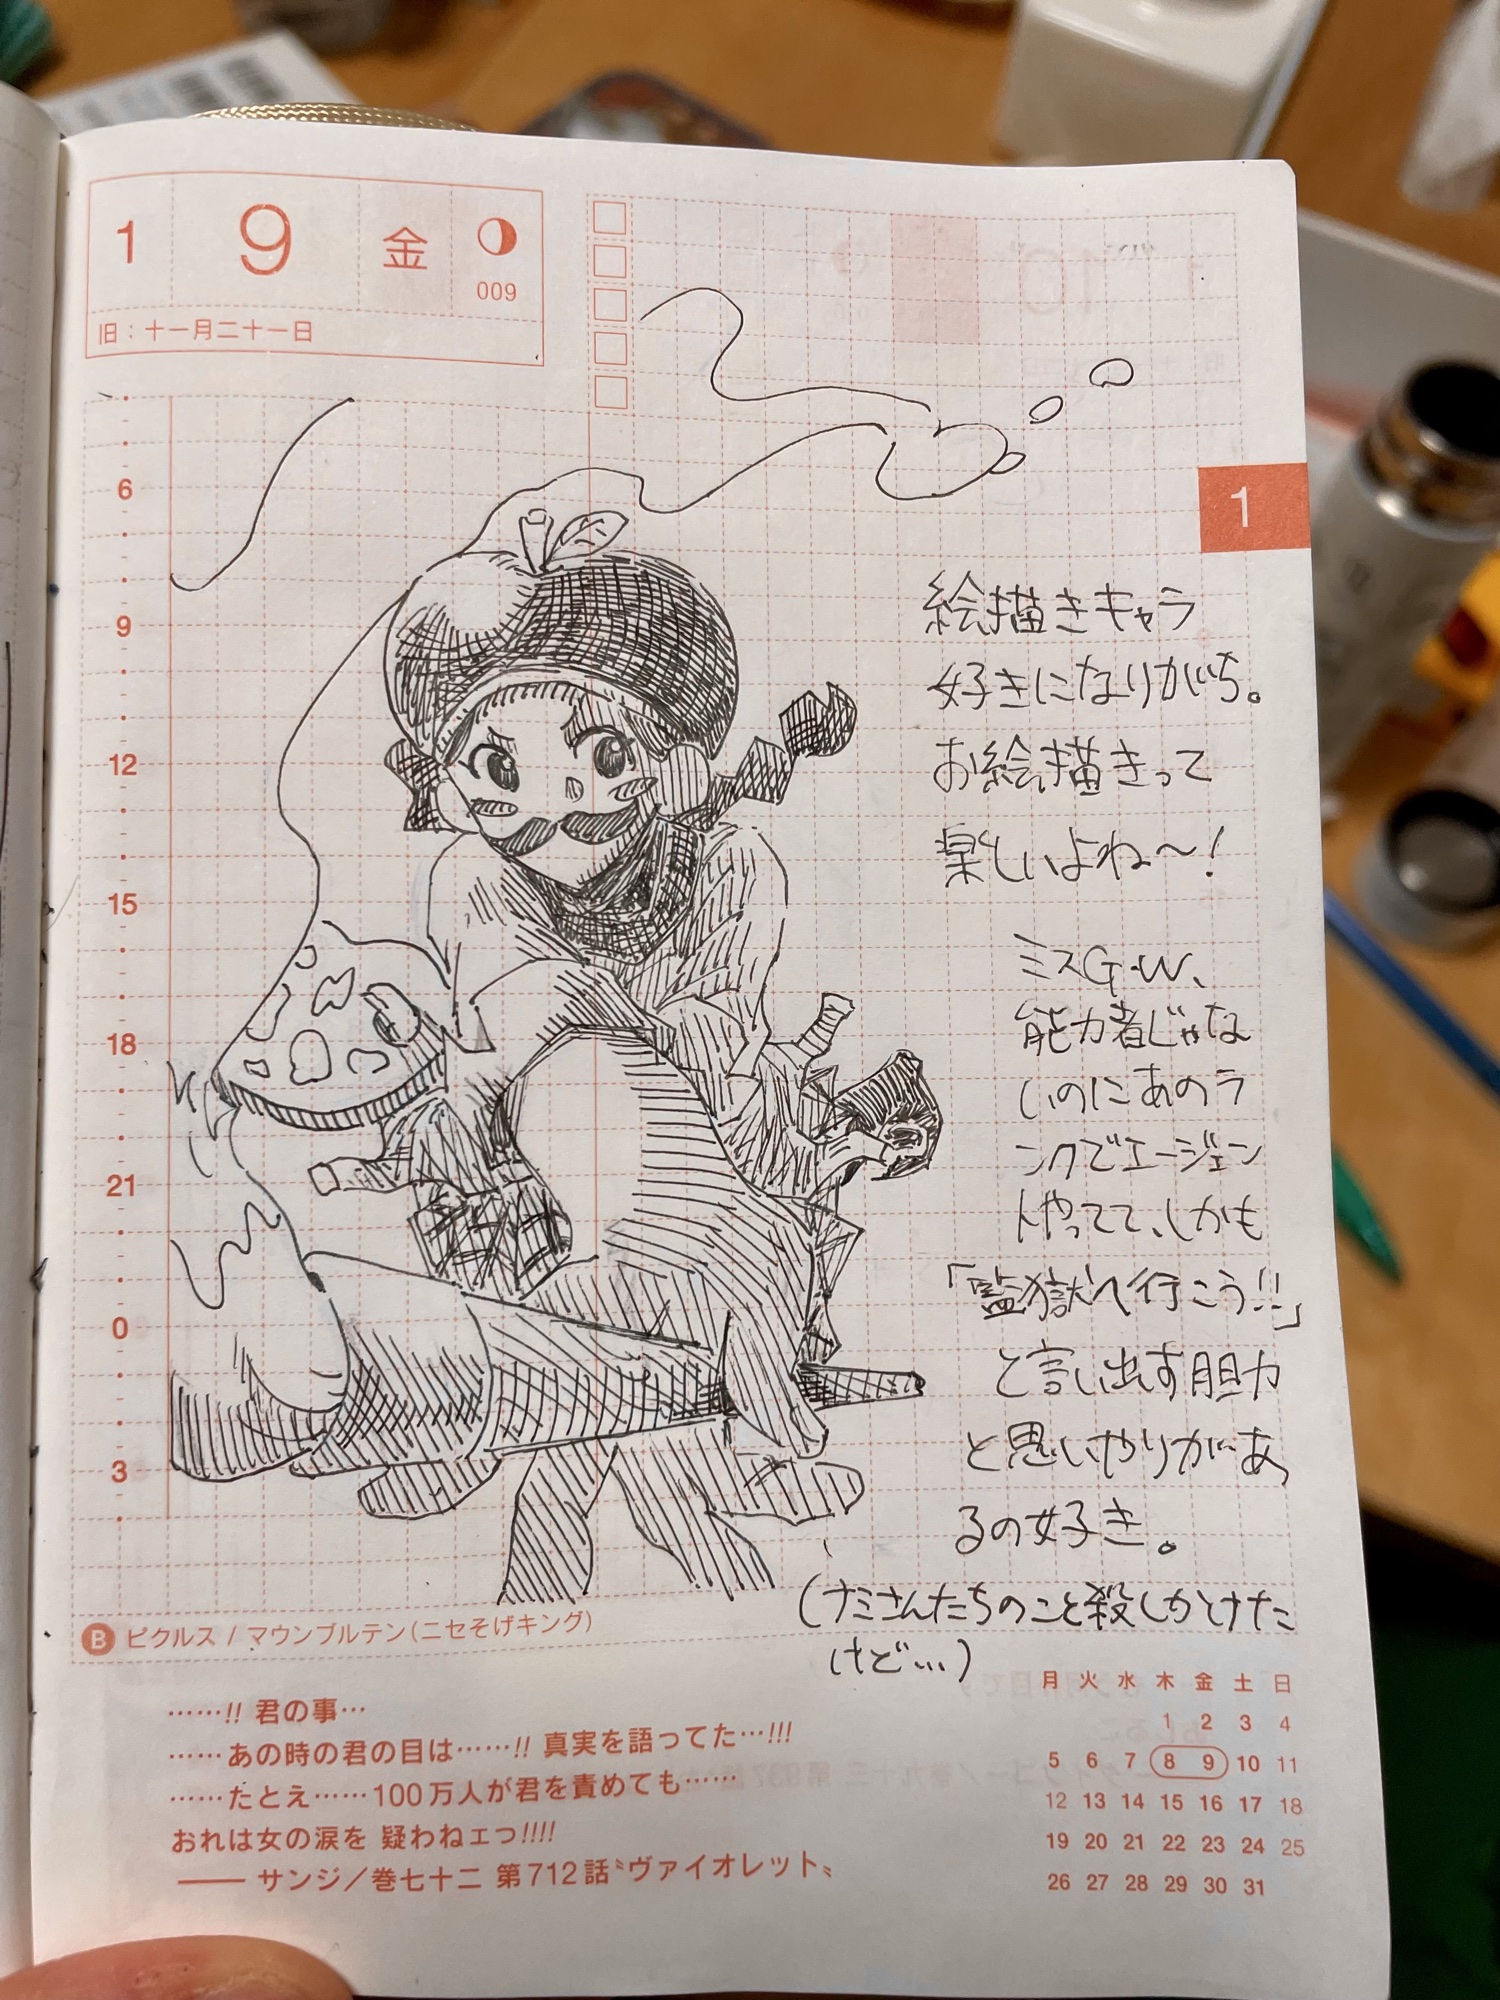 1 9 金
009
旧：十一月二十一日
1
6
9
12
15
18
21
0
3
絵描きキャラ
好きになりがち。
お絵描きって
楽しいよね〜！
ミスG.W、
能力者じゃな
いのにあのラ
ンクでエージェン
トやってて、しかも
「監獄へ行こう!!」
と言い出す胆力
と思いやりがあ
るの好き。
（ナミさんたちのこと殺しかけた
けど…）
B ピクルス / マウンブルテン（ニセそげキング）
……!! 君の事…
……あの時の君の目は……!! 真実を語ってた…!!!
……たとえ……100万人が君を責めても……
おれは女の涙を 疑わねェっ!!!!
—— サンジ／巻七十二 第712話〝ヴァイオレット〟
月 火 水 木 金 土 日
1 2 3 4
5 6 7 8 9 10 11
12 13 14 15 16 17 18
19 20 21 22 23 24 25
26 27 28 29 30 31